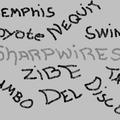 MEMPHIS
oyote NEQUIT SWIN
SHARPWIRES
ZIBE TA
MBO DEL DISCO